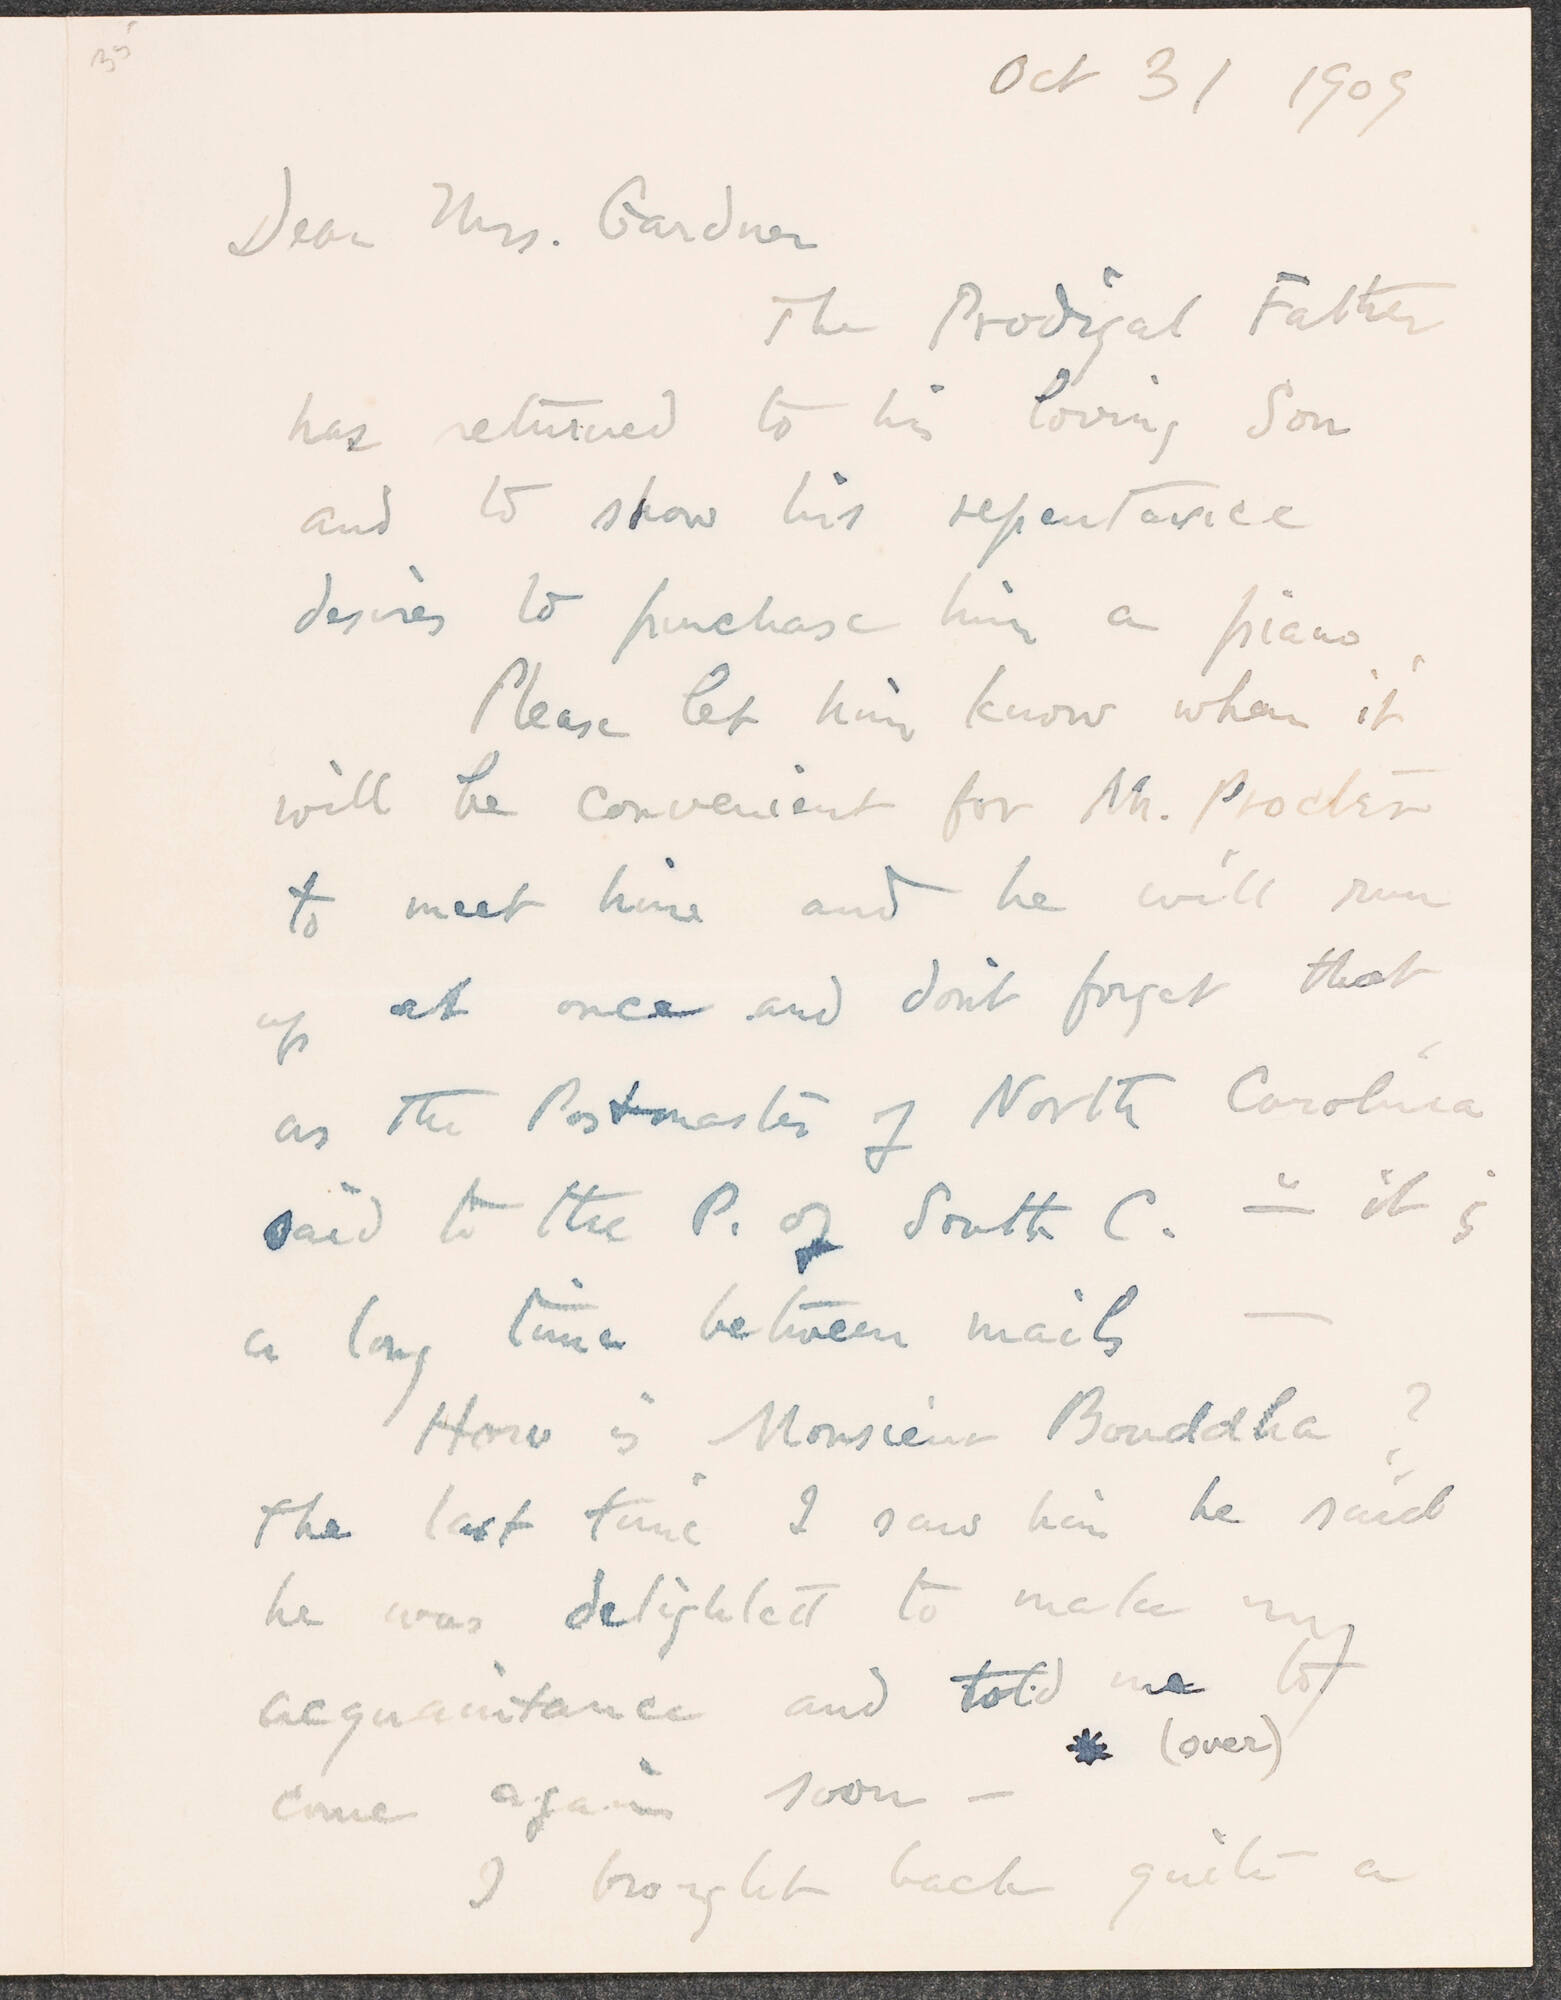 35
Oct 31 1909
Dear Mrs. Gardner
The Prodigal Father
has returned to his loving Son
and to show his repentance
desires to purchase him a piano.
Please let him know when it
will be convenient for Mr. Procter
to meet him and he will run
up at once and don't forget that
as the Postmaster of North Carolina
said to the P. of South C. — it is
a long time between mails —
How is Monsieur Bouddha?
The last time I saw him he said
he was delighted to make my
acquaintance and told me to
* (over)
come again soon —
I brought back quite a